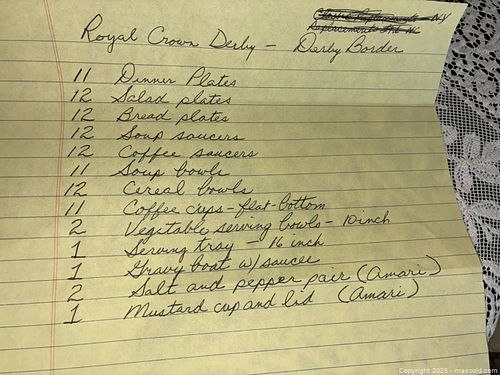 Replacements Ltd NC
Royal Crown Derby – Derby Border
11 Dinner Plates
12 Salad plates
12 Bread plates
12 Soup saucers
12 Coffee saucers
11 Soup bowls
12 Cereal bowls
11 Coffee cups - flat-bottom
2 Vegetable serving bowls - 10 inch
1 Serving tray - 16 inch
1 Gravy boat w/ saucer
2 Salt and pepper pair (Amari)
1 Mustard cup and lid (Amari)
Copyright 2025 - maxsold.com